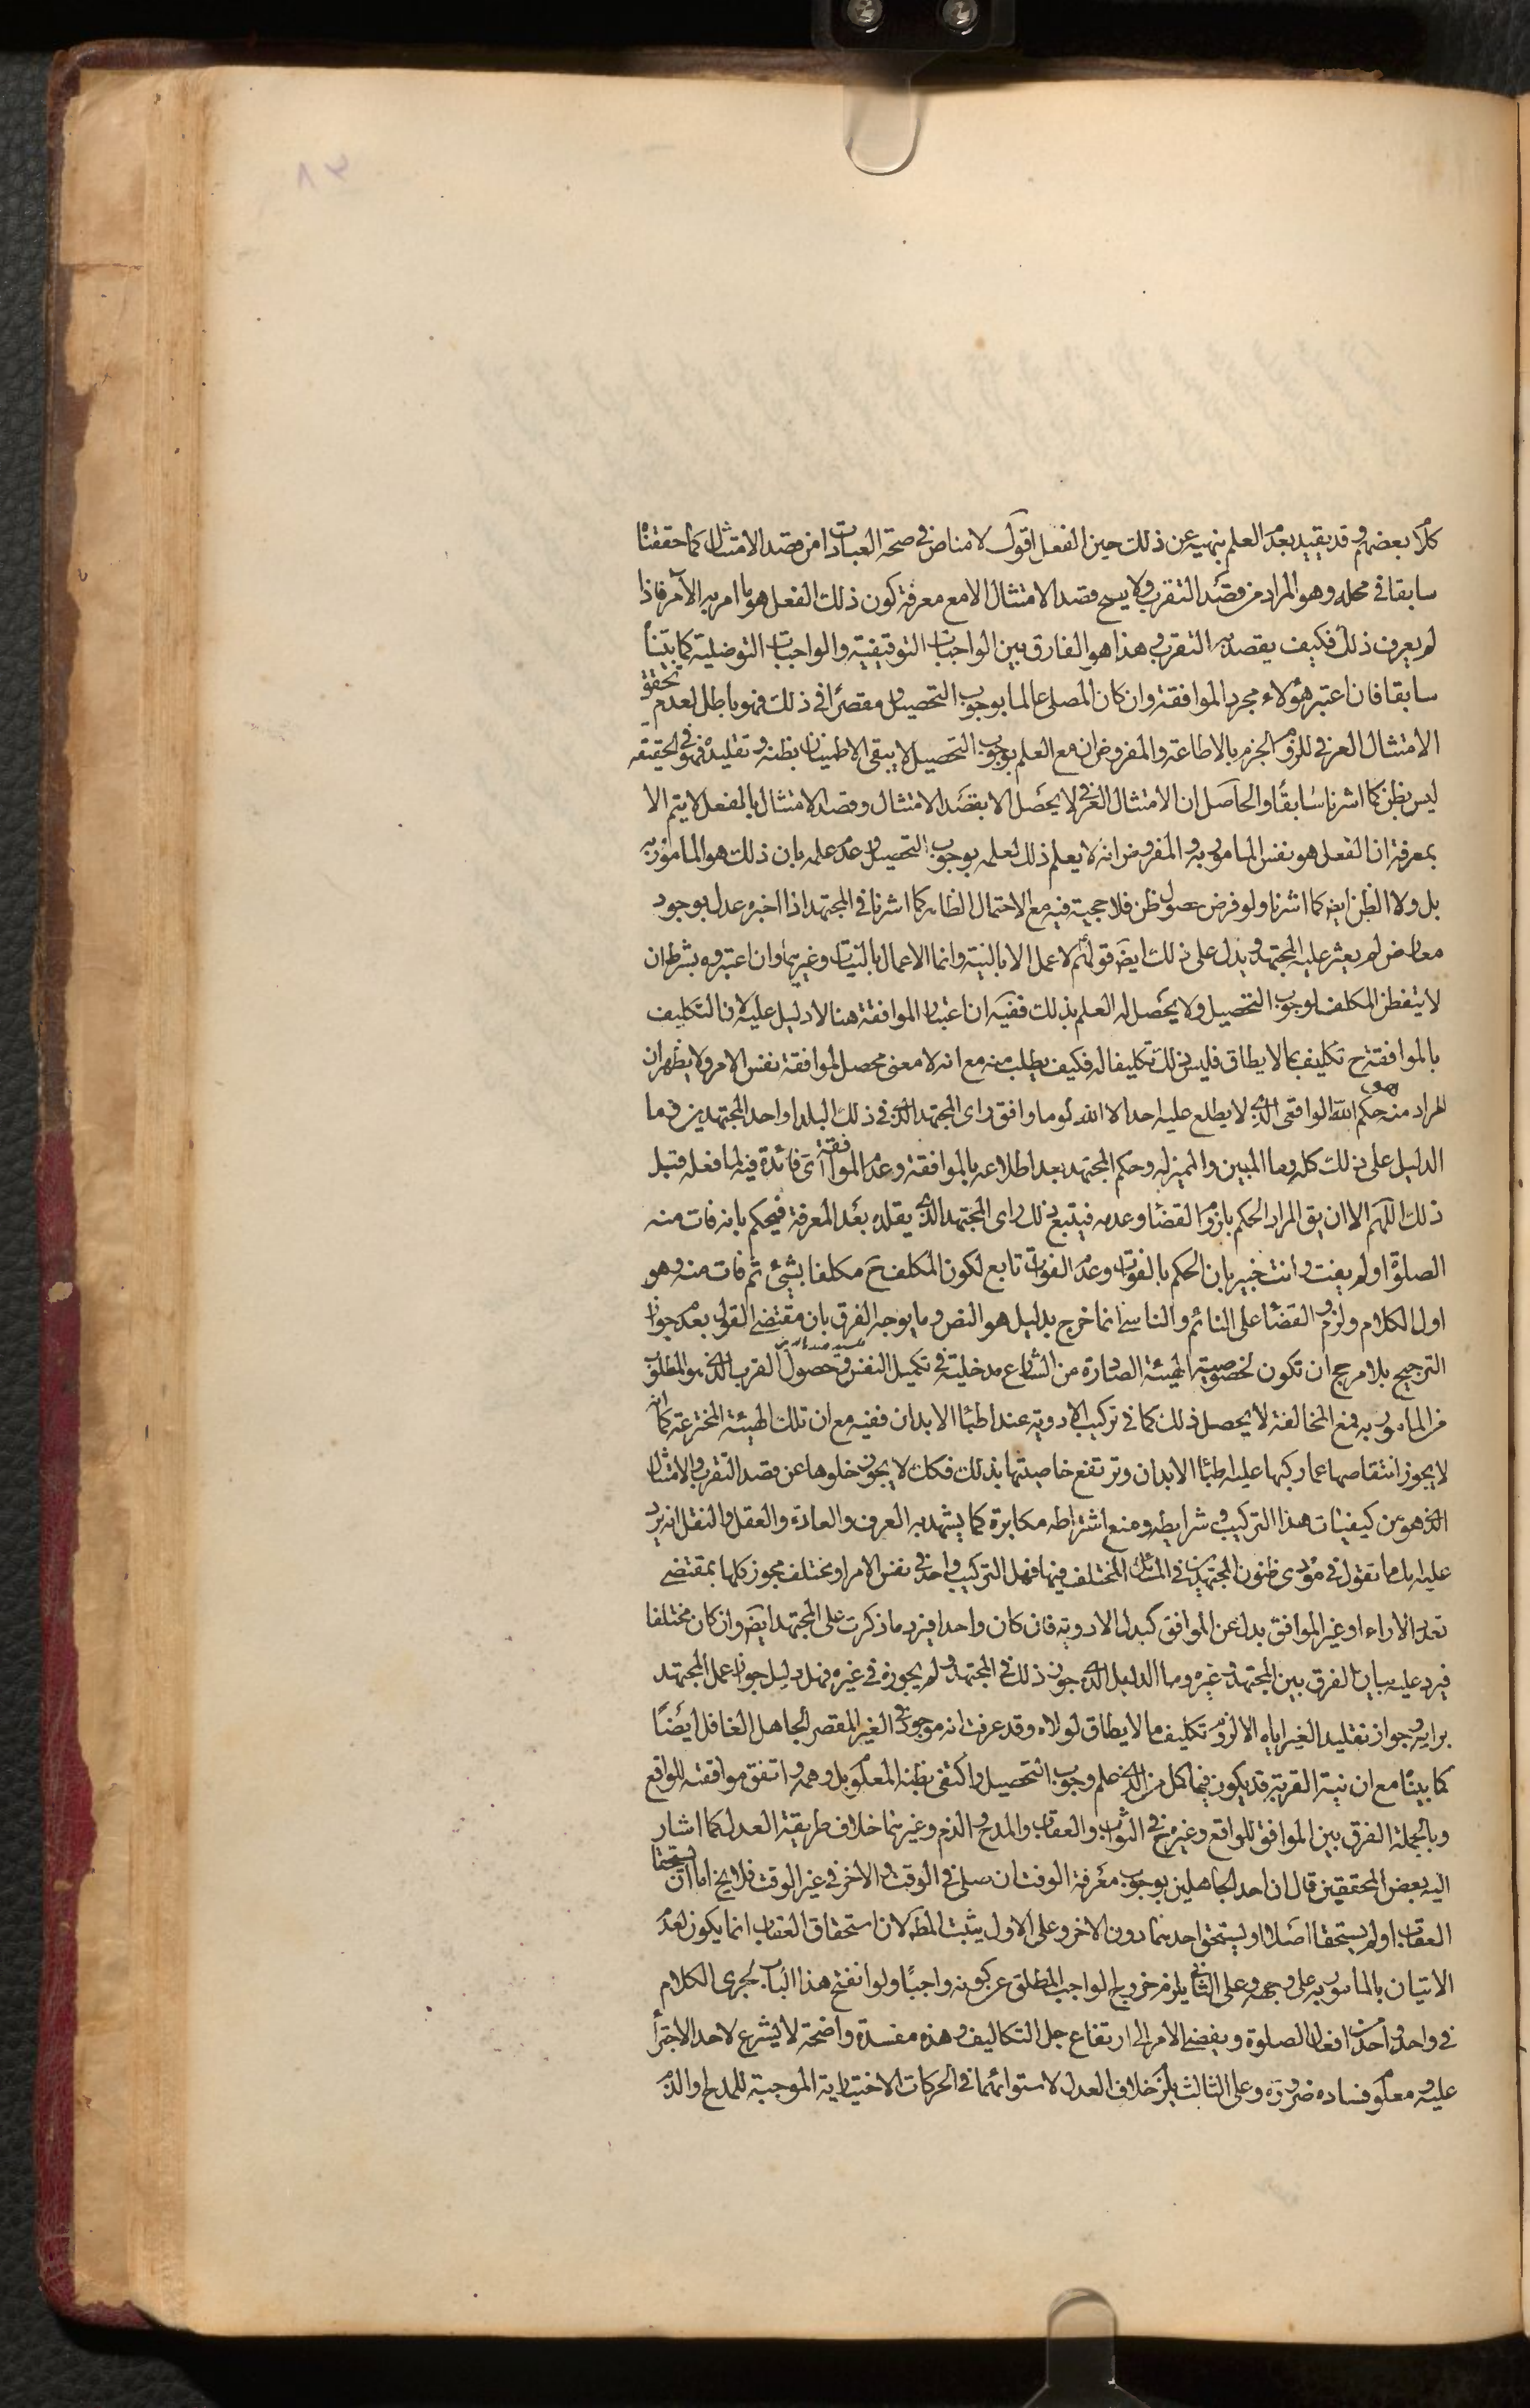 كلام بعضهم وقد يقيد بعدم العلم بنهيه عن ذلك حين الفعل اقول لا مناص في صحة العبادات من قصد الامتثال كما حققنا
سابقا في محله وهو المراد من قصد التقرب ولا يصح قصد الامتثال الا مع معرفة كون ذلك الفعل هو ما امر به الآمر فاذا
لم يعرف ذلك فكيف يقصد به التقرب وهذا هو الفارق بين الواجبات التوقيفية والواجبات التوصلية كما بيّنا
سابقا فان اعتبر هؤلاء مجرد الموافقة وان كان المصلي عالما بوجوب التحصيل ومقصرا في ذلك فهو باطل لعدم تحقق
الامتثال العرفي للزوم الجزم بالاطاعة والمفروض انه مع العلم بوجوب التحصيل لا يبقى الاطمينان بظنه وتقليده فهو في الحقيقه
ليس بظن كما اشرنا سابقًا والحاصل ان الامتثال العرفي لا يحصل الا بقصد الامتثال وقصد الامتثال بالفعل لا يتم الا
بمعرفة ان الفعل هو نفس المامور به والمفروض انه لا يعلم ذلك لعلمه بوجوب التحصيل وعدم علمه بان ذلك هو المامور به
بل ولا الظن ايض كما اشرنا ولو فرض حصول ظن فلا حجية فيه مع الاحتمال الظاهر كما اشرنا في المجتهد اذا اخبره عدل بوجود
معارض لم يعثر عليه المجتهد ويدل على ذلك ايض قولهم لا عمل الا بالنية وانما الاعمال بالنيات وغيرهما وان اعتبروه بشرط ان
لا يتفطن المكلف لوجوب التحصيل ولا يحصل له العلم بذلك ففيه ان اعتبار الموافقة هنا لا دليل عليه فان التكليف
بالموافقة ح تكليف بما لا يطاق فليس ذلك تكليفا له فكيف يطلب منه مع انه لا معنى محصل لموافقة نفس الامر ولا يظهر ان
المراد منه هو حكم الله الواقعي الذي لا يطلع عليه احد الا الله او ما وافق راى المجتهد الذي في ذلك البلد او احد المجتهدين وما
الدليل على ذلك كله وما المبين والمميز له وحكم المجتهد بعد اطلاعه بالموافقة وعدم الموافقة اى فائدة فيه لما فعله قبل
ذلك اللهم الا ان يق المراد الحكم بلزوم القضا وعدمه فيتبع ذلك راى المجتهد الذي يقلده بعد المعرفة فيحكم بانه فات منه
الصلوة او لم يفت وانت خبير بان الحكم بالفوات وعدم الفوات تابع لكون المكلف ح مكلفا بشيء ثم فات منه وهو
اول الكلام ولزوم القضا على النائم والناسي انما خرج بدليل هو النص وما يوجه الفرق بان مقتضى القول بعدم جواز
الترجيح بلا مرجح ان تكون لخصوصية الهيئة الصادرة من الشارع مدخلية في تكميل النفس وحصول القرب الذي هو المطلوب
من المامور به فمع المخالفة لا يحصل ذلك كما في تركيب الادوية عند اطباء الابدان ففيه مع ان تلك الهيئة المخترعة كما انه
لا يجوز انتقاصها عما ركبها عليه اطباء الابدان وترتفع خاصيتها بذلك فكك لا يجوز خلوها عن قصد التقرب والامتثال
الذي هو من كيفيات هذا التركيب وشرايطه ومنع اشتراطه مكابرة كما يشهد به العرف والعادة والعقل والنقل انه يرد
عليه بان ما تقول في مؤدى ظنون المجتهدين في المسائل المختلف فيها فهل التركيب واحد في نفس الامر او مختلف يجوز كلها بمقتضى
تعدد الاراء او غير الموافق بدل عن الموافق كبدل الادوية فان كان واحدا فيرد ما ذكرت على المجتهد ايض وان كان مختلفا
فيرد عليه بيان الفرق بين المجتهد وغيره وما الدليل الذي جوز ذلك في المجتهد ولم يجوزه في غيره فهل دليل جواز عمل المجتهد
برايه وجواز تقليد الغير اياه الا لزوم تكليف ما لا يطاق لولاه وقد عرفت انه موجود في الغير المقصر الجاهل الغافل ايضًا
كما بيّنا مع ان نية القربة قد يكون فيها اكمل من الذي علم وجوب التحصيل واكتفى بظنه المعلوم بل وهمه واتفق موافقته للواقع
وبالجملة الفرق بين الموافق للواقع وغيره ح في الثواب والعقاب والمدح والذم وغيرهما خلاف طريقة العدل كما اشار
اليه بعض المحققين قال ان احد الجاهلين بوجوب معرفة الوقت ان صلى في الوقت والاخر في غير الوقت فلا يخ اما ان يستحقا
العقاب او لم يستحقا اصلا او يستحق احدهما دون الاخر وعلى الاول يثبت المط لان استحقاق العقاب انما يكون لعدم
الاتيان بالمامور به على وجهه وعلى الثاني يلزم خروج الواجب المطلق عن كونه واجبًا ولو انفتح هذا الباب لجرى الكلام
في واحد واحد من افعال الصلوة ويفضي الامر الى ارتفاع جل التكاليف وهذه مفسدة واضحة لا يشرع لاحد الاجتراء
عليه ومعلوم فساده ضرورة وعلى الثالث يلزم خلاف العدل لاستوائهما في الحركات الاختيارية الموجبة للمدح او الذم